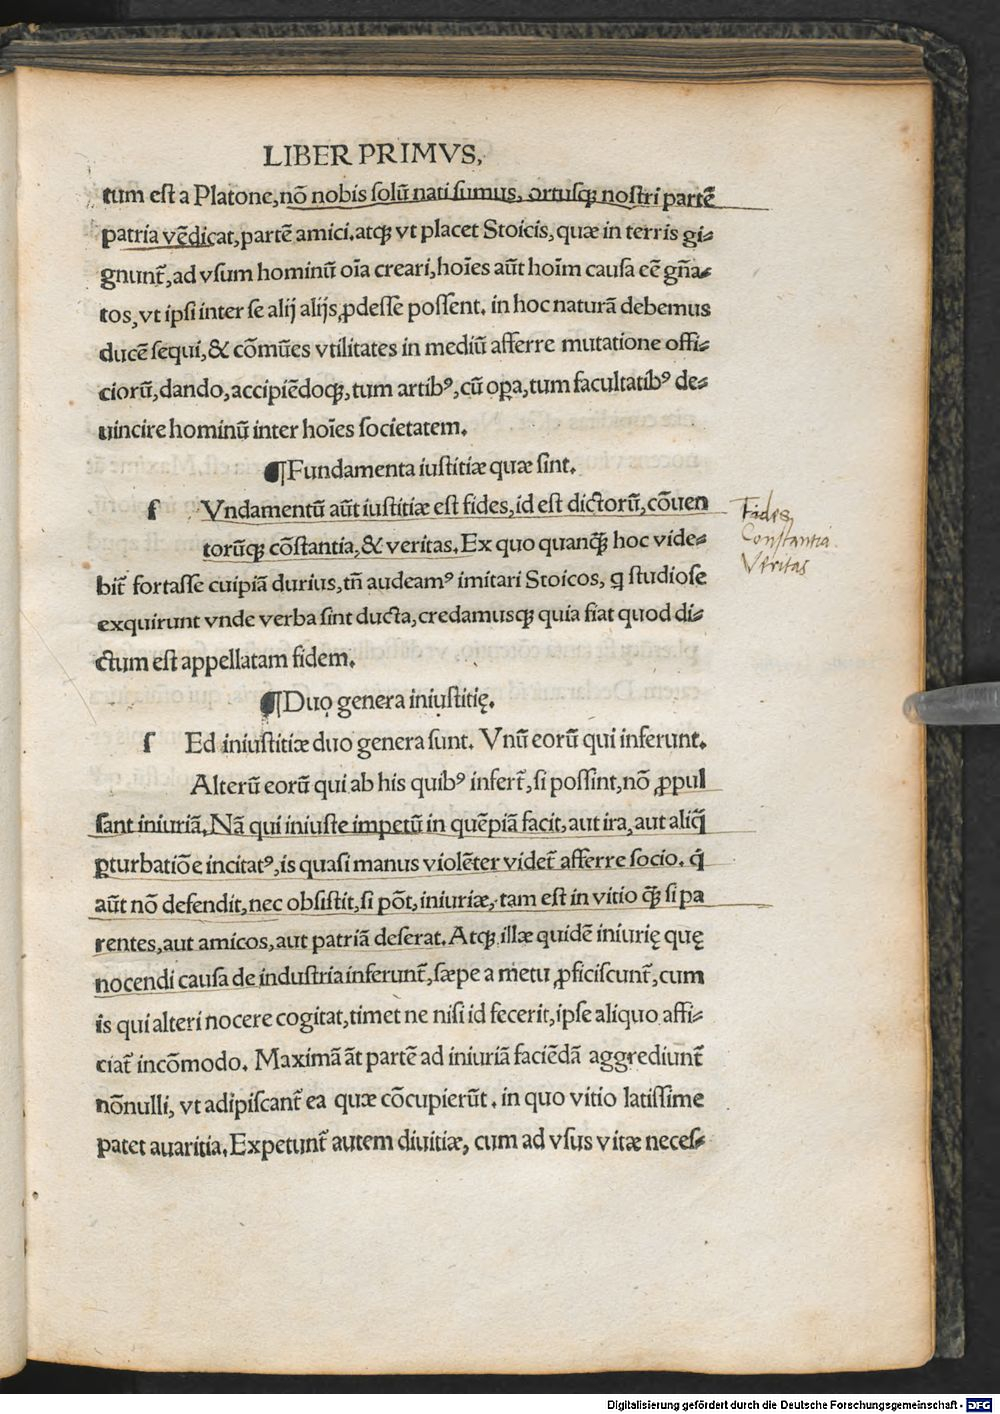 LIBER PRIMVS,
tum est a Platone, nõ nobis solũ nati sumus, ortusqꝫ nostri partẽ
patria vẽdicat, partẽ amici, atqꝫ vt placet Stoicis, quæ in terris gi⸗
gnunt᷒, ad vsum hominũ oĩa creari, hoĩes aũt hoĩm causa eẽ gña⸗
tos, vt ipsi inter se alij alijs ꝓdesse possent. in hoc naturã debemus
ducẽ sequi, & cõmũes vtilitates in mediũ afferre mutatione offi⸗
ciorũ, dando, accipiẽdoqꝫ, tum artibꝰ, cũ oꝑa, tum facultatibꝰ de⸗
uincire hominũ inter hoĩes societatem.
¶Fundamenta iustitiæ quæ sint.
f Vndamentũ aũt iustitiæ est fides, id est dictorũ, cõuen
torũqꝫ cõstantia, & veritas. Ex quo quanqꝫ̃ hoc vide⸗
bit᷒ fortasse cuipiã durius, tñ audeamꝰ imitari Stoicos, q̇ studiose
exquirunt vnde verba sint ducta, credamusqꝫ quia fiat quod di⸗
ctum est appellatam fidem.
Fides,
Constantia.
Veritas
¶Duo genera iniustitię.
s Ed iniustitiæ duo genera sunt. Vnũ eorũ qui inferunt.
Alterũ eorũ qui ab his quibꝰ infert᷒, si possint, nõ ꝓpul
sant iniuriã. Nã qui iniuste impetũ in quẽpiã facit, aut ira, aut aliq̃
ꝑturbatiõe incitatꝰ, is quasi manus violẽter videt᷒ afferre socio. q̇
aũt nõ defendit, nec obsistit, si põt, iniuriæ, tam est in vitio qꝫ̃ si pa
rentes, aut amicos, aut patriã deserat. Atqꝫ illæ quidẽ iniurię quę
nocendi causa de industria inferunt᷒, sæpe a metu ꝓficiscunt᷒, cum
is qui alteri nocere cogitat, timet ne nisi id fecerit, ipse aliquo affi⸗
ciat᷒ incõmodo. Maximã ãt partẽ ad iniuriã faciẽdã aggrediunt᷒
nõnulli, vt adipiscant᷒ ea quæ cõcupierũt. in quo vitio latissime
patet auaritia. Expetunt᷒ autem diuitiæ, cum ad vsus vitæ neces⸗
Digitalisierung gefördert durch die Deutsche Forschungsgemeinschaft - DFG